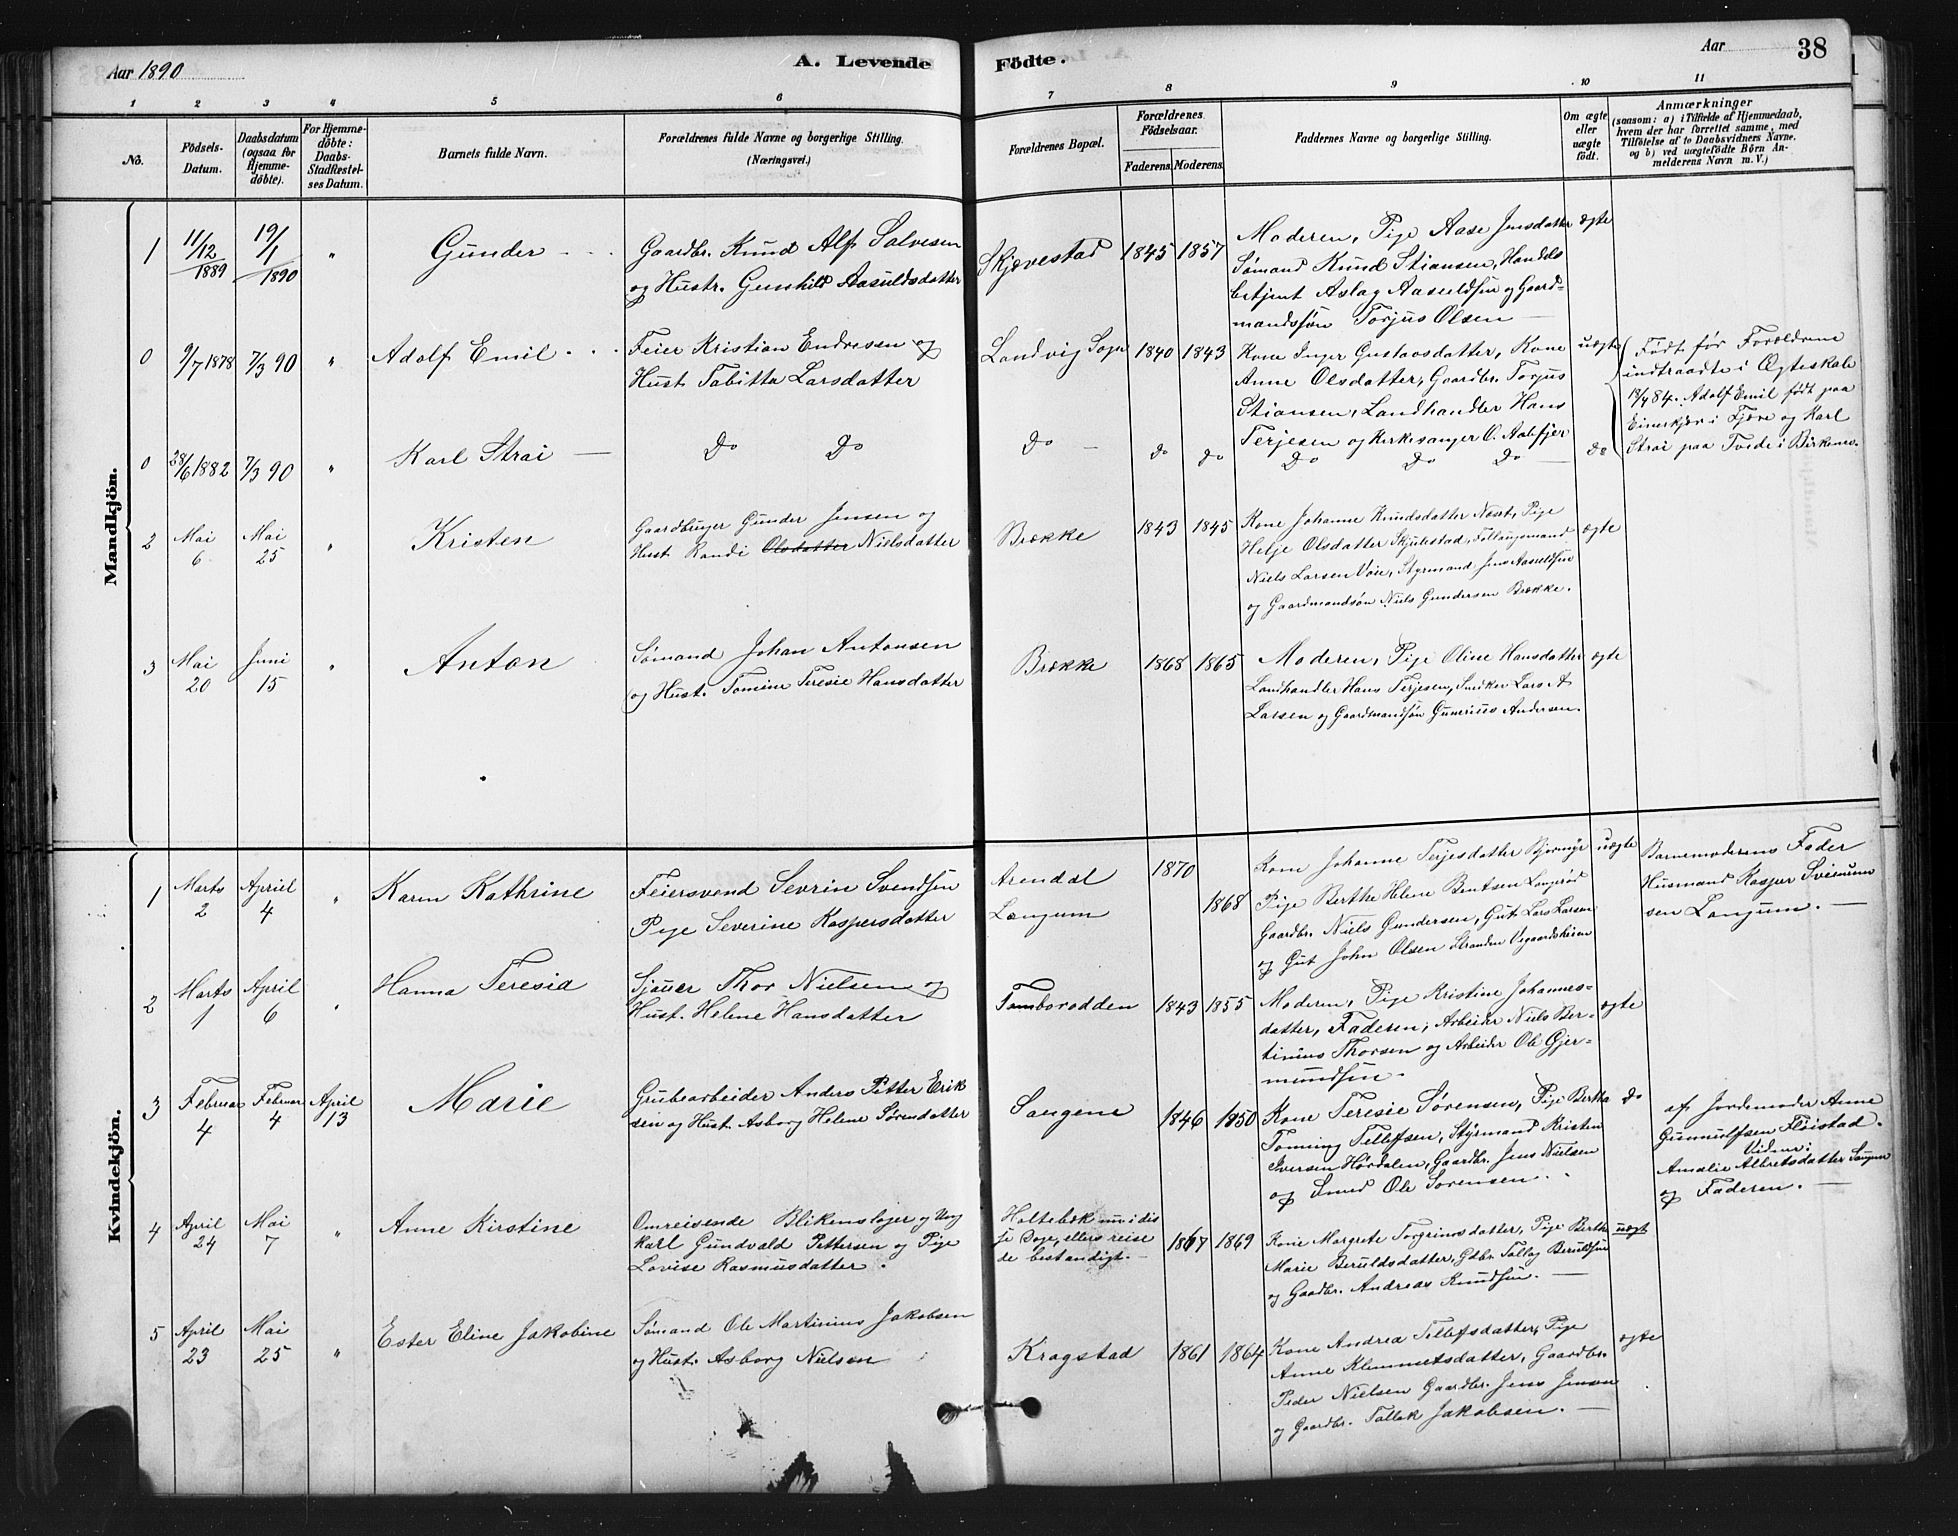 Aar 1890
A. Levende
Födte.
Aar
38
1 2 3 4 5 6 7 8 9 10 11
No.
Födsels-
Datum.
Daabsdatum
(ogsaa for
Hjemme-
döbte).
For Hjemme-
döbte:
Daabs-
Stadfæstel-
ses Datum.
Barnets fulde Navn.
Forældrenes fulde Navne og borgerlige Stilling.
(Næringsvei.)
Forældrenes Bopæl.
Forældrenes
Födselsaar.
Faderens. Moderens.
Faddernes Navne og borgerlige Stilling.
Om ægte
eller
uægte
födt.
Anmærkninger
(saasom: a) i Tilfælde af Hjemmedaab,
hvem der har forrettet samme, med
Tilföielse af to Daabsvidners Navne.
og b) ved uægtefödte Börn An-
melderens Navn m. V.)
Mandkjön.
1
11/12
1889
19/1
1890
"
Gunder
Gaardbr. Knud Alf Salvesen
og Hustr. Gunhild Aasuldsdatter
Skjævestad
1845 1857
Moderen, Pige Aase Jensdatter
Sømand Knud Stiansen, Handels
betjent Aslag Aasuldsen og Gaard-
mandssøn Torjus Olsen
ægte
0
9/7 1878
7/3 90
"
Adolf Emil
Feier Kristian Endresen og
Hust. Tabitta Larsdatter
Landvig Sogn
1840 1843
Kone Inger Gustavsdatter, Kone
Anne Olsdatter, Gaardbr. Torjus
Stiansen, Landhandler Hans
Terjesen og Kirkesanger O. Aabfjer
uægte
Født før Forældrene
indtraadte i Ægteskab
18/4 84. Adolf Emil født paa
i Fjære og Karl
Strai paa Tvede i Birkenes.
0
28/6 1882
7/3 90
"
Karl Strai
Do Do
Do
Do Do
Do Do Do
Do
2
Mai
6
Mai
25
"
Kristen
Gaardbruger Gunder Jensen og
Hust. Randi Olsdatter Nielsdatter
Brække
1843 1845
Kone Johanne Knudsdatter Næset, Pige
Helje Olsdatter Skjulestad,
Niels Larsen Voie, Styrmand Jens Aasuldsen
og Gaardmandsøn Niels Gundersen Brække.
ægte
3
Mai
20
Juni
15
"
Anton
Sømand Johan Antonsen
og Hust. Tomine Teresie Hansdatter
Brække
1868 1865
Moderen, Pige Oline Hansdatter
Landhandler Hans Terjesen, Snedker Lars A
Larsen og Gaardmandsøn Gunerius Andersen.
ægte
Kvindekjön.
1
Marts
2
Apriel
4
"
Karen Kathrine
Feiersvend Sevrin Svendsen
Pige Severine Kaspersdatter
Arendal
Langum
1870
1868
Kone Johanne Terjesdatter Bjormyr
Pige Berthe Helene Bentsen Langerød
Gaardbr. Niels Gundersen, Gut Lars Larsen
og Gut John Olsen Stranden Vegaardsheien
uægte
Barnemoderens Fader
Husmand Kasper
sen Langum.
2
Marts
1
April
6
"
Hanna Teresia
Sjauer Thor Nielsen og
Hust. Helene Hansdatter
Tomborodden
1843 1855
Moderen, Pige Kristine Johannes-
datter, Faderen, Arbeider Niels Ber-
tinius Thorsen og Arbeider Ole Gjer-
mundsen.
ægte
3
Februar
4
Februar
4
April
13
Marie
Grubearbeider Anders Petter Erik
sen og Hust. Asborg Helene Sørensdatter
Sangene
1846 1850
Kone Teresie Sørensen, Pige Bertha
Tomine Tellefsen, Styrmand Kristen
Iversen Hørdalen, Gaardbr. Jens Nielsen
og Smed Ole Sørensen.
Do
af Jordemoder Anne
Gunnulfsen Fløistad.
Vidner:
Amalie Albretsdatter Sangene
og Faderen.
4
April
24
Mai
7
"
Anne Kirstine
Omreisende Blikenslager og Ung
karl Gundvald Pettersen og Pige
Lovise Rasmusdatter.
Holtebæk nu i dis
se Dage, ellers reise
de bestandigt.
1867 1869
Kone Margrete Torgrimsdatter, Pige Berthe
Marie Beruldsdatter, Gdbr. Tallag Beruldsen
og Gaardbr. Andreas Knudsen.
uægt
5
April
23
Mai
25
"
Ester Eline Jakobine
Sømand Ole Martinius Jakobsen
og Hust. Asborg Nielsen
Kragstad
1861 1864
Kone Andrea Tellefsdatter, Pige
Anne Klemmetsdatter, Gaardbr.
Peder Nielsen Gaardbr. Jens Jensen
og Gaardbr. Tallak Jakobsen.
ægte